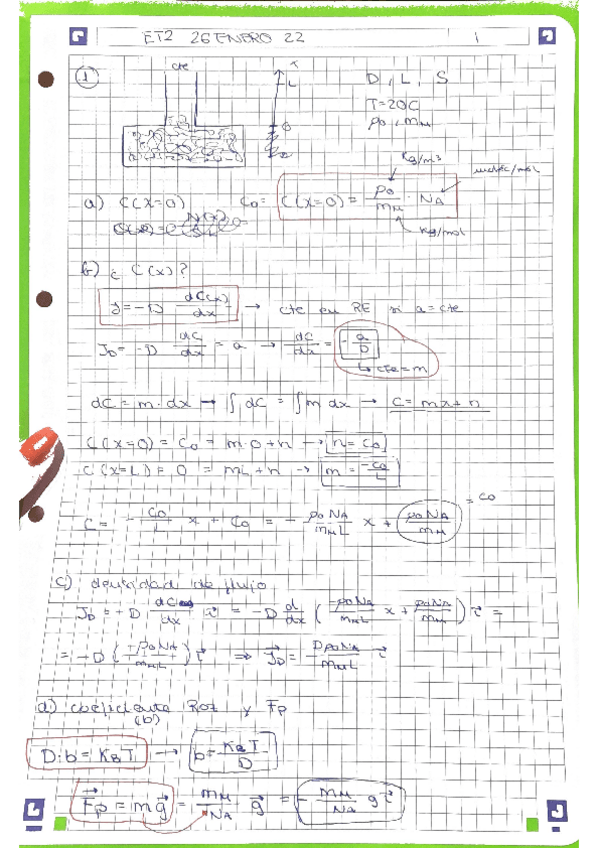 ET2 26 ENERO 22 1
① cte x D, L, S
L T=20C
0 ρ₀, m_M
kg/m³ molec/mol
a) C(x=0) C₀ = C(x=0) = ρ₀/m_M · N_A
kg/mol
b) ¿ C(x)?
J = -D dC(x)/dx → cte en RE si a = cte
J_D = -D dC/dx = a → dC/dx = -a/D
↳ cte = m
dC = m·dx → ∫dC = ∫m dx → C = mx+n
C(x=0) = C₀ = m·0+n → n = C₀
C(x=L) = 0 = mL+n → m = -C₀/L
C = -C₀/L x + C₀ = - ρ₀N_A/m_M L x + ρ₀N_A/m_M = C₀
c) densidad de flujo
J_D = -D dC/dx i⃗ = -D d/dx ( -ρ₀N_A/m_M L x + ρ₀N_A/m_M ) i⃗ =
= -D ( -ρ₀N_A/m_M L ) i⃗ ⇒ J⃗_D = Dρ₀N_A/m_M L i⃗
d) coeficiente Roz y Fp
(b)
D·b = K_B T → b = K_B T/D
F⃗p = m g⃗ = m_M/N_A g⃗ = - m_M/N_A g i⃗